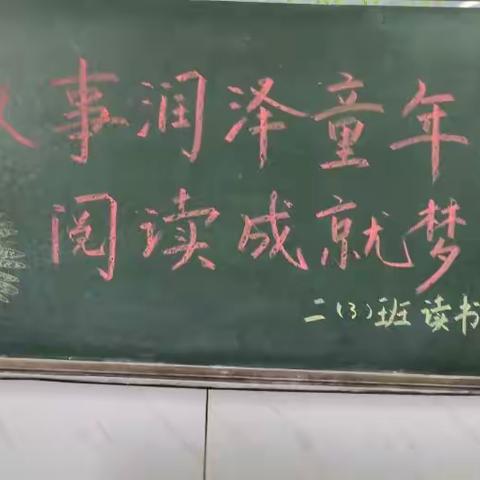 事润泽童年
阅读成就梦
二(3)班读书